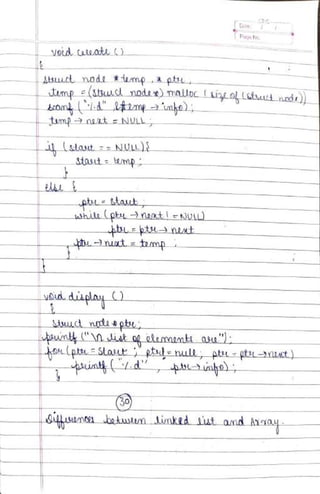 Date / /
Page No.
void create ()
{
struct node *temp, * ptr,
temp = (struct node*) malloc ( size of (struct node))
scanf ("%d" &temp → info);
temp → next = NULL;
if (start == NULL){
start = temp;
}
else {
ptr = start,
while (ptr → next != NULL)
ptr = ptr → next
ptr → next = temp ;
}
}
void display ()
{
struct node *ptr;
printf ("\n list of elements are");
for (ptr = start ; ptr != null, ptr = ptr → next)
printf ("%d" , ptr → info);
}
30
Differences between linked list and Array.